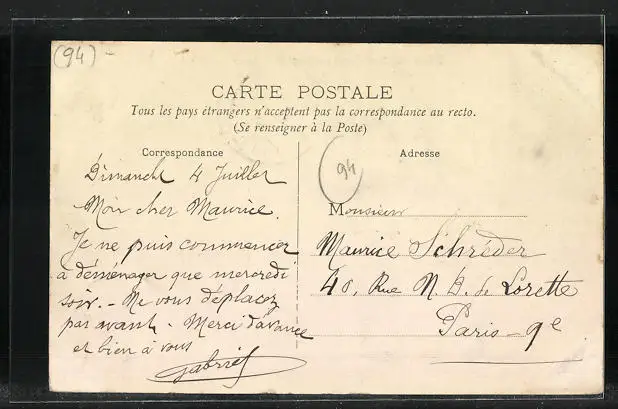 (94)
CARTE POSTALE
Tous les pays étrangers n'acceptent pas la correspondance au recto.
(Se renseigner à la Poste)
Correspondance
Dimanche 4 Juillet
Mon cher Maurice.
Je ne puis commencer
à déménager que mercredi
soir. - Ne vous déplacez
pas avant - Merci d'avance
et bien à vous
Gabriel
Adresse
94
Monsieur
Maurice Schréder
40, Rue N. D. de Lorette
Paris - 9e